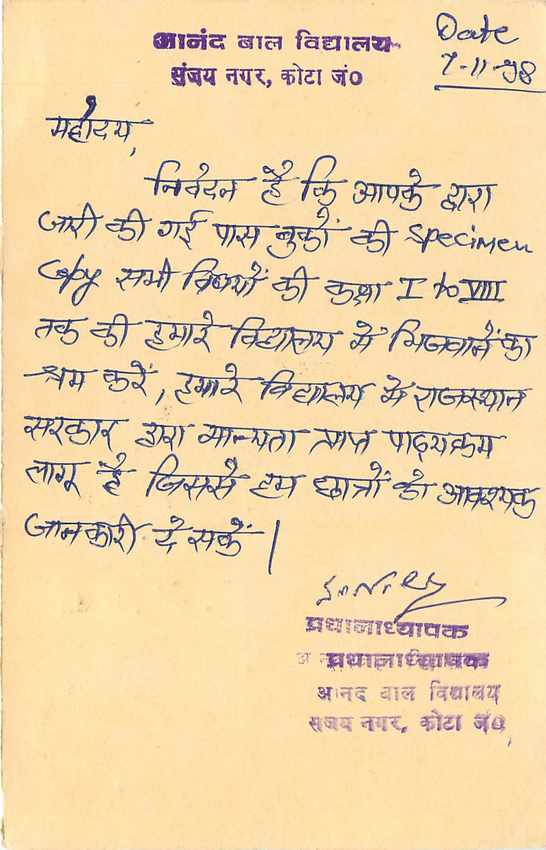 आनंद बाल विद्यालय
संजय नगर, कोटा जं०
Date
7-11-98
महोदय,
निवेदन है कि आपके द्वारा
जारी की गई पास बुकों की Specimen
Copy सभी विषयों की कक्षा I to VIII
तक की हमारे विद्यालय में भिजवानें का
श्रम करें, हमारे विद्यालय में राजस्थान
सरकार द्वारा मान्यता प्राप्त पाठ्यक्रम
लागू है जिससे हम छात्रों को आवश्यक
जानकारी दे सकें।
प्रधानाध्यापक
प्रधानाध्यापक
आनंद बाल विद्यालय
संजय नगर, कोटा जं०